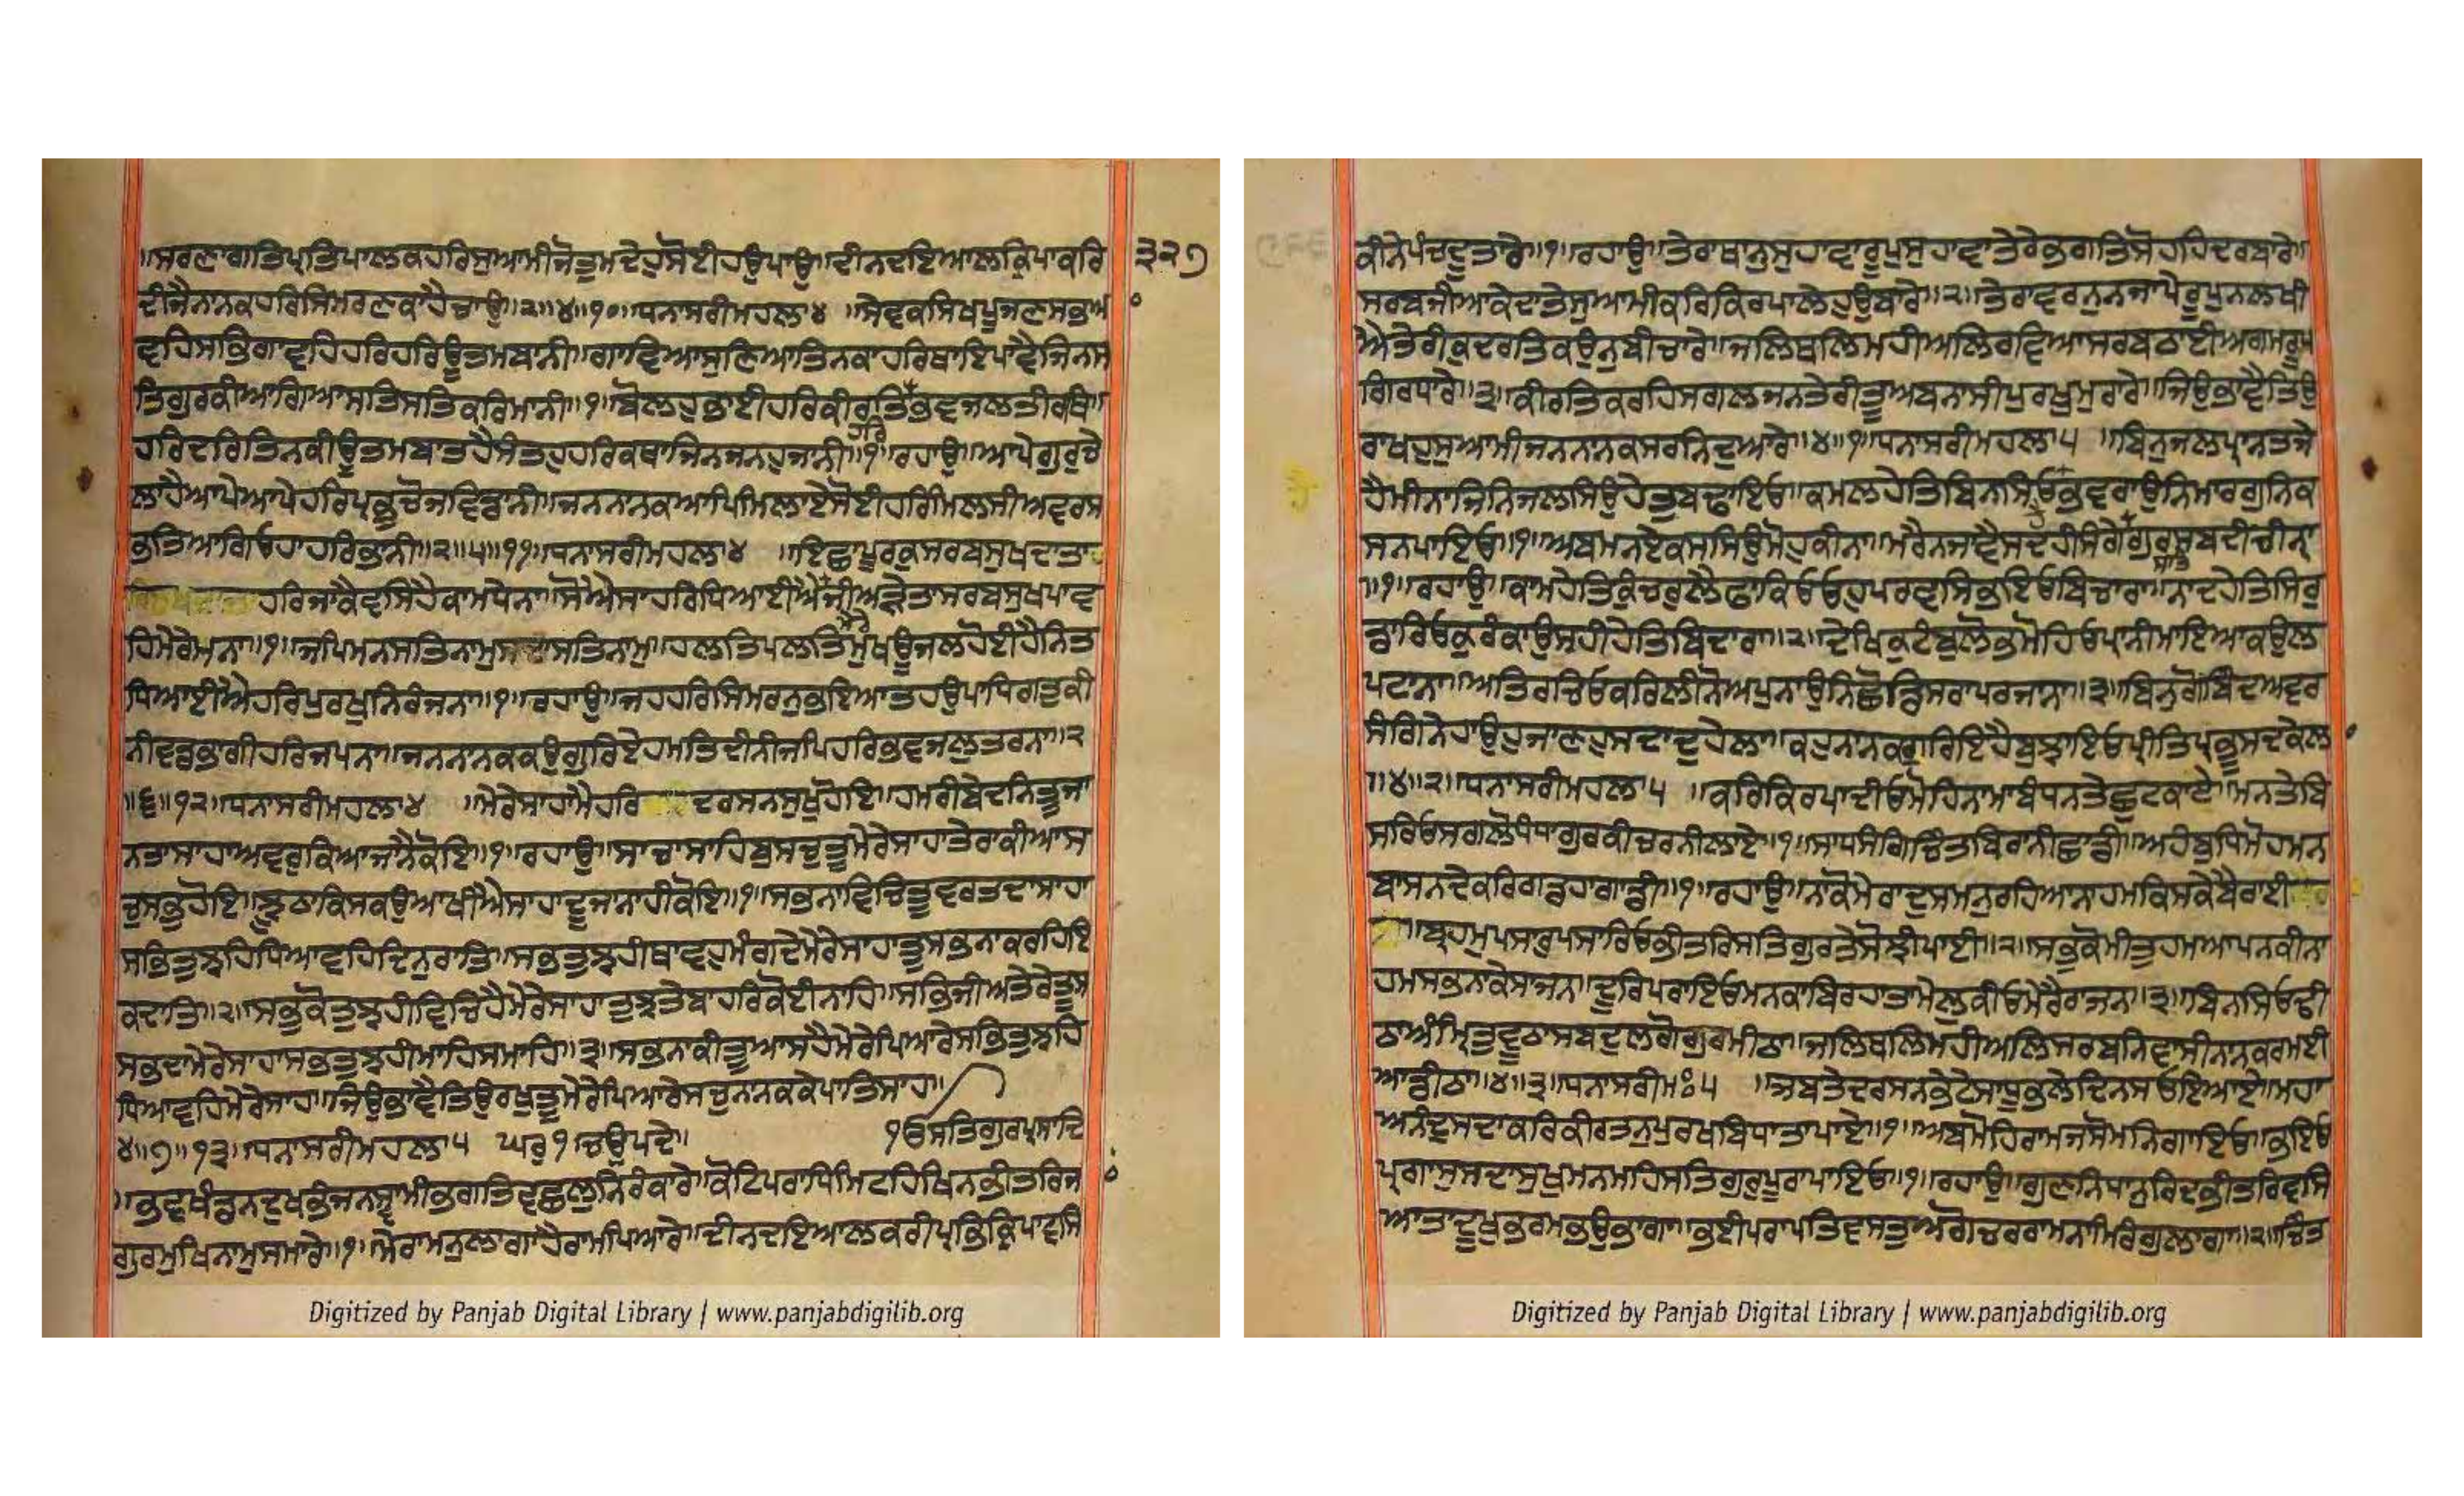 ॥ਸਰਣਾਗਤਿਪ੍ਰਤਿਪਾਲਕਹਰਿਸੁਆਮੀਜੋਤੁਮਦੇਹੁਸੋਈਹਉਪਾਉ॥ਦੀਨਦਇਆਲਕ੍ਰਿਪਾਕਰਿ
੩੨੭
ਦੀਜੈਨਾਨਕਹਰਿਸਿਮਰਣਕਾਹੈਚਾਉ॥੨॥੪॥੧੦॥ਧਨਾਸਰੀਮਹਲਾ੪ ॥ਸੇਵਕਸਿਖਪੂਜਣਸਭਿਆ
ਵਹਿਸਭਿਗਾਵਹਿਹਰਿਹਰਿਊਤਮਬਾਨੀ॥ਗਾਵਿਆਸੁਣਿਆਤਿਨਕਾਹਰਿਥਾਇਪਾਵੈਜਿਨਸ
ਤਿਗੁਰਕੀਆਗਿਆਸਤਿਸਤਿਕਰਿਮਾਨੀ॥੧॥ਬੋਲਹੁਭਾਈਹਰਿਕੀਰਤਿਭਵਜਲਤੀਰਥਿ॥
ਹਰਿ
ਹਰਿਦਰਿਤਿਨਕੀਊਤਮਬਾਤਹੈਸੰਤਹੁਹਰਿਕਥਾਜਿਨਜਨਹੁਜਾਨੀ॥੧॥ਰਹਾਉ॥ਆਪੇਗੁਰੁਚੇ
ਲਾਹੈਆਪੇਆਪੇਹਰਿਪ੍ਰਭੁਚੋਜਵਿਡਾਨੀ॥ਜਨਨਾਨਕਆਪਿਮਿਲਾਏਸੋਈਹਰਿਮਿਲਸੀਅਵਰਸ
ਭਤਿਆਗਿਓਹਾਹਰਿਭਾਨੀ॥੨॥੫॥੧੧॥ਧਨਾਸਰੀਮਹਲਾ੪ ॥ਇਛਾਪੂਰਕੁਸਰਬਸੁਖਦਾਤਾ
ਹਰਿਜਾਕੈਵਸਿਹੈਕਾਮਧੇਨਾ॥ਸੋਐਸਾਹਰਿਧਿਆਈਐਜੀਅੜੇਤਾਸਰਬਸੁਖਪਾਵ
ਹਿਮੇਰੇਮਨਾ॥੧॥ਜਪਿਮਨਸਤਿਨਾਮੁਸਦਾਸਤਿਨਾਮੁ॥ਹਲਤਿਪਲਤਿਮੁਖਊਜਲਹੋਈਹੈਨਿਤ
ਧਿਆਈਐਹਰਿਪੁਰਖੁਨਿਰੰਜਨਾ॥੧॥ਰਹਾਉ॥ਜਹਹਰਿਸਿਮਰਨੁਭਇਆਤਹਉਪਾਧਿਗਤੁਕੀ
ਨੀਵਡਭਾਗੀਹਰਿਜਪਨਾ॥ਜਨਨਾਨਕਕਉਗੁਰਿਇਹਮਤਿਦੀਨੀਜਪਿਹਰਿਭਵਜਲੁਤਰਨਾ॥੨
॥੬॥੧੨॥ਧਨਾਸਰੀਮਹਲਾ੪ ॥ਮੇਰੇਸਾਹਾਮੈਹਰਿ ਦਰਸਨਸੁਖੁਹੋਇ॥ਹਮਰੀਬੇਦਨਿਤੂਜਾ
ਨਤਾਸਾਹਾਅਵਰੁਕਿਆਜਾਨੈਕੋਇ॥੧॥ਰਹਾਉ॥ਸਾਚਾਸਾਹਿਬੁਸਚੁਤੂਮੇਰੇਸਾਹਾਤੇਰਾਕੀਆਸ
ਚੁਸਭੁਹੋਇ॥ਝੂਠਾਕਿਸਕਉਆਖੀਐਸਾਹਾਦੂਜਾਨਾਹੀਕੋਇ॥੧॥ਸਭਨਾਵਿਚਿਤੂਵਰਤਦਾਸਾਹਾ
ਸਭਿਤੁਝਹਿਧਿਆਵਹਿਦਿਨੁਰਾਤਿ॥ਸਭਤੁਝਹੀਥਾਵਹੁਮੰਗਦੇਮੇਰੇਸਾਹਾਤੂਸਭਨਾਕਰਹਿਇ
ਕਦਾਤਿ॥੨॥ਸਭੁਕੋਤੁਝਹੀਵਿਚਿਹੈਮੇਰੇਸਾਹਾਤੁਝਤੇਬਾਹਰਿਕੋਈਨਾਹਿ॥ਸਭਿਜੀਅਤੇਰੇਤੂਸ
ਸਭਦਾਮੇਰੇਸਾਹਾਸਭਤੁਝਹੀਮਾਹਿਸਮਾਹਿ॥੩॥ਸਭਨਾਕੀਤੂਆਸਹੈਮੇਰੇਪਿਆਰੇਸਭਿਤੁਝਹਿ
ਧਿਆਵਹਿਮੇਰੇਸਾਹ॥ਜਿਉਭਾਵੈਤਿਉਰਖੁਤੂਮੇਰੇਪਿਆਰੇਸਚੁਨਾਨਕਕੇਪਾਤਿਸਾਹ॥
੪॥੭॥੧੩॥ਧਨਾਸਰੀਮਹਲਾ੫ ਘਰੁ੧॥ਚਉਪਦੇ॥ ੧ਓਸਤਿਗੁਰਪ੍ਰਸਾਦਿ
॥ਭਵਖੰਡਨਦੁਖਭੰਜਨਸ੍ਵਾਮੀਭਗਤਿਵਛਲੁਨਿਰੰਕਾਰੇ॥ਕੋਟਿਪਰਾਧਿਮਿਟਹਿਖਿਨਭੀਤਰਿਜ
ਗੁਰਮੁਖਿਨਾਮੁਸਮਾਰੇ॥੧॥ਮੇਰਾਮਨੁਲਾਗਾਹੈਰਾਮਪਿਆਰੇ॥ਦੀਨਦਇਆਲਕਰੀਪ੍ਰਭਿਕ੍ਰਿਪਾਵਸਿ
Digitized by Panjab Digital Library | www.panjabdigilib.org
ਕੀਨੇਪੰਚਦੂਤਾਰੇ॥੧॥ਰਹਾਉ॥ਤੇਰਾਥਾਨੁਸੁਹਾਵਾਰੂਪੁਸੁਹਾਵਾਤੇਰੇਭਗਤਿਸੋਹਹਿਦਰਬਾਰੇ॥
ਸਰਬਜੀਆਕੇਦਾਤੇਸੁਆਮੀਕਰਿਕਿਰਪਾਲੇਹੁਉਬਾਰੇ॥੨॥ਤੇਰਾਵਰਨੁਨਜਾਪੈਰੂਪੁਨਲਖੀ
ਐਤੇਰੀਕੁਦਰਤਿਕਉਨੁਬੀਚਾਰੇ॥ਜਲਿਥਲਿਮਹੀਅਲਿਰਵਿਆਸਰਬਠਾਈਅਗਮਰੂਪ
ਗਿਰਧਾਰੇ॥੩॥ਕੀਰਤਿਕਰਹਿਸਗਲਜਨਤੇਰੀਤੂਅਬਨਾਸੀਪੁਰਖੁਮੁਰਾਰੇ॥ਜਿਉਭਾਵੈਤਿਉ
ਰਾਖਹੁਸੁਆਮੀਜਨਨਾਨਕਸਰਨਿਦੁਆਰੇ॥੪॥੧॥ਧਨਾਸਰੀਮਹਲਾ੫ ॥ਬਿਨੁਜਲਪ੍ਰਾਨਤਜੇ
ਹੈਮੀਨਾਜਿਨਿਜਲਸਿਉਹੇਤੁਬਢਾਇਓ॥ਕਮਲਹੇਤਿਬਿਨਸਿਓਭਵਰਾਉਨਿਮਾਰਗੁਨਿਕ
ਸਨਪਾਇਓ॥੧॥ਅਬਮਨਏਕਸਸਿਉਮੋਹੁਕੀਨਾ॥ਮਰੈਨਜਾਵੈਸਦਹੀਸੰਗੇਗੁਰਸਬਦੀਚੀਨਾ
॥੧॥ਰਹਾਉ॥ਕਾਮਹੇਤਿਕੁੰਚਰੁਲੈਫਾਂਕਿਓਓਹੁਪਰਵਸਿਭਇਓਬਿਚਾਰਾ॥ਨਾਦਹੇਤਿਸਿਰੁ
ਡਾਰਿਓਕੁਰੰਕਾਉਸਹੀਹੇਤਿਬਿਦਾਰਾ॥੨॥ਦੇਖਿਕੁਟੰਬੁਲੋਭਮੋਹਿਓਪ੍ਰਾਨੀਮਾਇਆਕਉਲ
ਪਟਾਨਾ॥ਅਤਿਰਚਿਓਕਰਿਲੀਨੋਅਪੁਨਾਉਨਿਛੋਡਿਸਰਾਪਰਜਾਨਾ॥੩॥ਬਿਨੁਗੋਬਿੰਦਅਵਰ
ਸੰਗਿਨੇਹਾਉਹੁਜਾਣਹੁਸਦਾਦੁਹੇਲਾ॥ਕਹੁਨਾਨਕਗੁਰਿਇਹੈਬੁਝਾਇਓਪ੍ਰੀਤਿਪ੍ਰਭੂਸਦਕੇਲਾ
॥੪॥੨॥ਧਨਾਸਰੀਮਹਲਾ੫ ॥ਕਰਿਕਿਰਪਾਦੀਓਮੋਹਿਨਾਮਾਬੰਧਨਤੇਛੁਟਕਾਏ॥ਮਨਤੇਬਿ
ਸਰਿਓਸਗਲੋਧੰਧਾਗੁਰਕੀਚਰਨੀਲਾਏ॥੧॥ਸਾਧਸੰਗਿਚਿੰਤਬਿਰਾਨੀਛਾਡੀ॥ਅਹੰਬੁਧਿਮੋਹਮਨ
ਬਾਸਨਦੇਕਰਿਗਡਹਾਗਾਡੀ॥੧॥ਰਹਾਉ॥ਨਾਕੋਮੇਰਾਦੁਸਮਨੁਰਹਿਆਨਾਹਮਕਿਸਕੇਬੈਰਾਈ
॥ਬ੍ਰਹਮੁਪਸਾਰੁਪਸਾਰਿਓਭੀਤਰਿਸਤਿਗੁਰਤੇਸੋਝੀਪਾਈ॥੨॥ਸਭੁਕੋਮੀਤੁਹਮਆਪਨਕੀਨਾ
ਹਮਸਭਨਾਕੇਸਾਜਨ॥ਦੂਰਿਪਰਾਇਓਮਨਕਾਬਿਰਹਾਤਾਮੇਲੁਕੀਓਮੇਰੈਰਾਜਨ॥੩॥ਬਿਨਸਿਓਢੀ
ਠਾਅੰਮ੍ਰਿਤੁਵੂਠਾਸਬਦੁਲਗੋਗੁਰਮੀਠਾ॥ਜਲਿਥਲਿਮਹੀਅਲਿਸਰਬਨਿਵਾਸੀਨਾਨਕਰਮਈ
ਆਡੀਠਾ॥੪॥੩॥ਧਨਾਸਰੀਮਃ੫ ॥ਜਬਤੇਦਰਸਨਭੇਟੇਸਾਧੂਭਲੇਦਿਨਸਓਇਆਏ॥ਮਹਾ
ਅਨੰਦੁਸਦਾਕਰਿਕੀਰਤਨੁਪੁਰਖਬਿਧਾਤਾਪਾਏ॥੧॥ਅਬਮੋਹਿਰਾਮਜਸੋਮਨਿਗਾਇਓ॥ਭਇਓ
ਪ੍ਰਗਾਸੁਸਦਾਸੁਖੁਮਨਮਹਿਸਤਿਗੁਰੁਪੂਰਾਪਾਇਓ॥੧॥ਰਹਾਉ॥ਗੁਣਨਿਧਾਨੁਰਿਦਭੀਤਰਿਵਸਿ
ਆਤਾਦੂਖੁਭਰਮਭਉਭਾਗਾ॥ਭਈਪਰਾਪਤਿਵਸਤੁਅਗੋਚਰਰਾਮਨਾਮਿਰੰਗੁਲਾਗਾ॥੨॥ਚਿੰਤ
Digitized by Panjab Digital Library | www.panjabdigilib.org